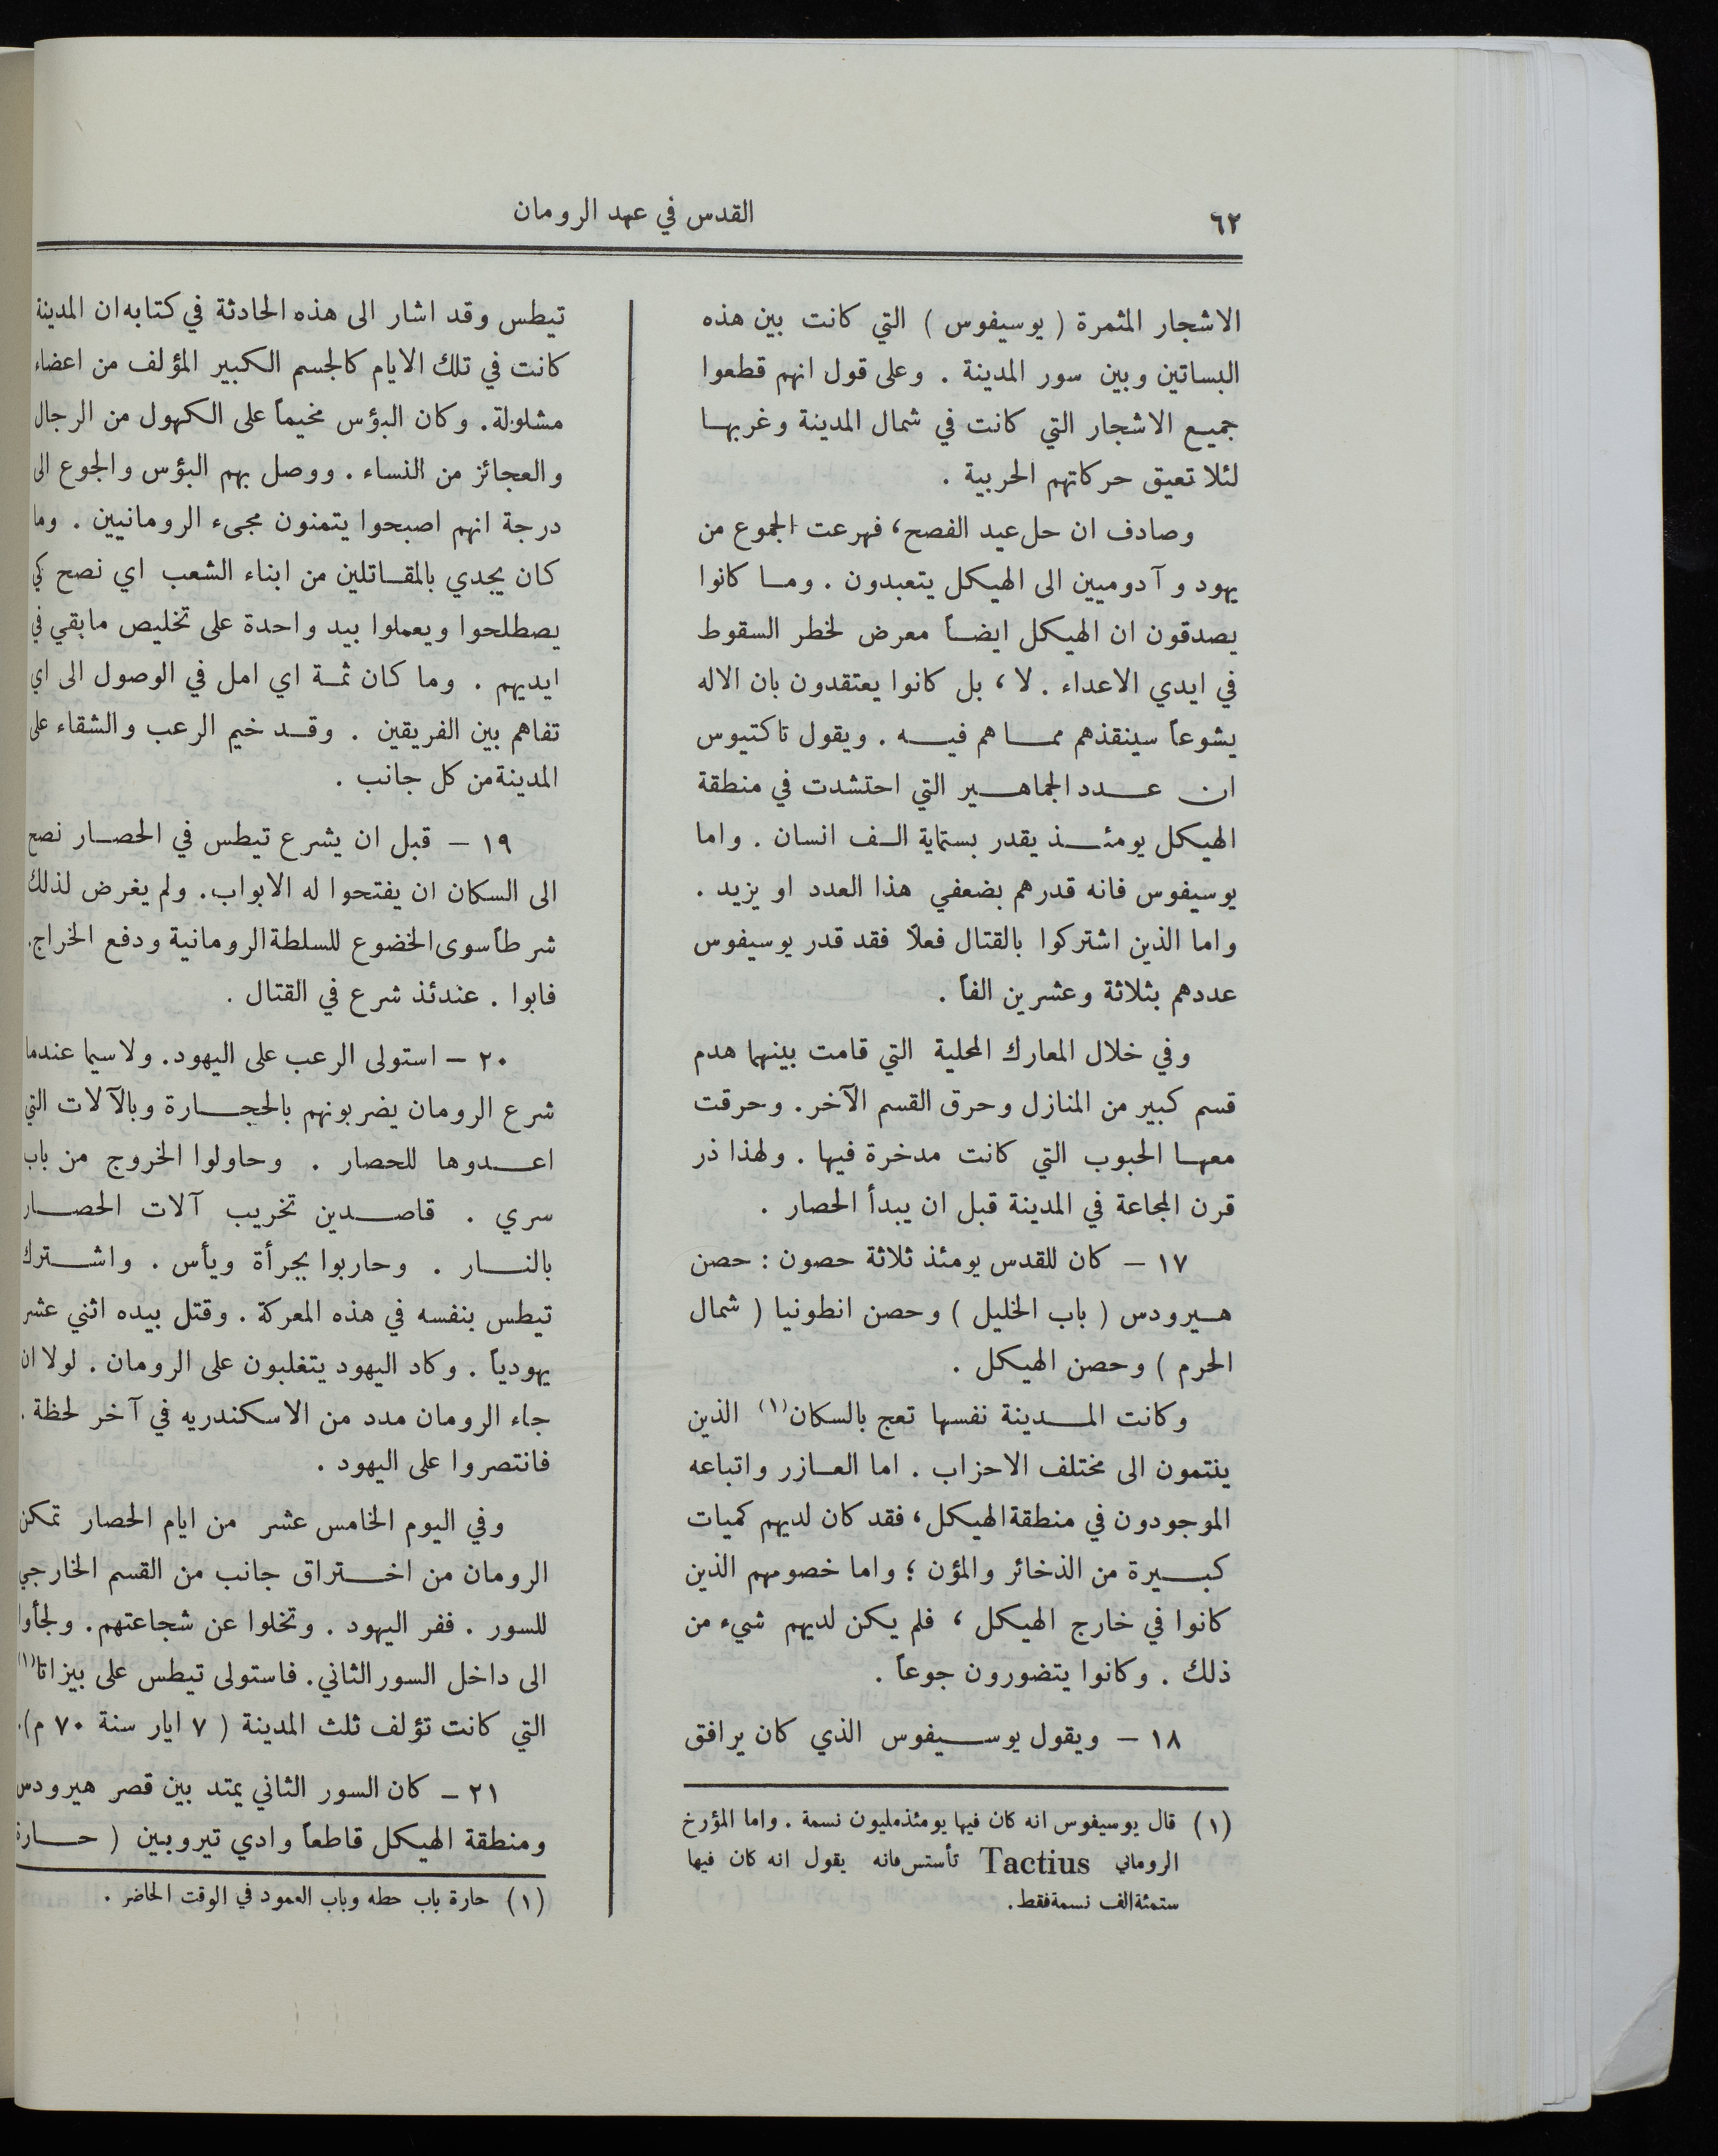 ٦٢
القدس في عهد الرومان
الاشجار المثمرة ( يوسيفوس ) التي كانت بين هذه
البساتين وبين سور المدينة . وعلى قول انهم قطعوا
جميع الاشجار التي كانت في شمال المدينة وغربها
لئلا تعيق حركاتهم الحربية .
وصادف ان حل عيد الفصح، فهرعت الجموع من
يهود وآدوميين الى الهيكل يتعبدون . وما كانوا
يصدقون ان الهيكل ايضاً معرض لخطر السقوط
في ايدي الاعداء . لا، بل كانوا يعتقدون بان الاله
يشوعاً سينقذهم مما هم فيه . ويقول تاكتيوس
ان عدد الجماهير التي احتشدت في منطقة
الهيكل يومئذ يقدر بستماية الف انسان . واما
يوسيفوس فانه قدرهم بضعفي هذا العدد او يزيد .
واما الذين اشتركوا بالقتال فعلاً فقد قدر يوسيفوس
عددهم بثلاثة وعشرين الفاً .
وفي خلال المعارك المحلية التي قامت بينهما هدم
قسم كبير من المنازل وحرق القسم الآخر. وحرقت
معها الحبوب التي كانت مدخرة فيها . ولهذا ذر
قرن المجاعة في المدينة قبل ان يبدأ الحصار .
١٧ – كان للقدس يومئذ ثلاثة حصون : حصن
هيرودس ( باب الخليل ) وحصن انطونيا ( شمال
الحرم ) وحصن الهيكل .
وكانت المدينة نفسها تعج بالسكان(١) الذين
ينتمون الى مختلف الاحزاب . اما العازر واتباعه
الموجودون في منطقة الهيكل، فقد كان لديهم كميات
كبيرة من الذخائر والمؤن ؛ واما خصومهم الذين
كانوا في خارج الهيكل ، فلم يكن لديهم شيء من
ذلك . وكانوا يتضورون جوعاً .
١٨ – ويقول يوسيفوس الذي كان يرافق
(١) قال يوسيفوس انه كان فيها يومئذ مليون نسمة . واما المؤرخ
الروماني Tactius تأستس فانه يقول انه كان فيها
ستمئة الف نسمة فقط.
تيطس وقد اشار الى هذه الحادثة في كتابه ان المدينة
كانت في تلك الايام كالجسم الكبير المؤلف من اعضاء
مشلولة. وكان البؤس مخيماً على الكهول من الرجال
والعجائز من النساء . ووصل بهم البؤس والجوع الى
درجة انهم اصبحوا يتمنون مجيء الرومانيين . وما
كان يجدي بالمقاتلين من ابناء الشعب اي نصح كي
يصطلحوا ويعملوا بيد واحدة على تخليص مابقي في
ايديهم . وما كان ثمة اي امل في الوصول الى اي
تفاهم بين الفريقين . وقد خيم الرعب والشقاء على
المدينة من كل جانب .
١٩ – قبل ان يشرع تيطس في الحصار نصح
الى السكان ان يفتحوا له الابواب. ولم يغرض لذلك
شرطاً سوى الخضوع للسلطة الرومانية ودفع الخراج.
فابوا . عندئذ شرع في القتال .
٢٠ – استولى الرعب على اليهود. ولاسيما عندما
شرع الرومان يضربونهم بالحجارة وبالآلات التي
اعدوها للحصار . وحاولوا الخروج من باب
سري . قاصدين تخريب آلات الحصار
بالنار . وحاربوا بجرأة ويأس . واشترك
تيطس بنفسه في هذه المعركة . وقتل بيده اثني عشر
يهودياً . وكاد اليهود يتغلبون على الرومان . لولا ان
جاء الرومان مدد من الاسكندريه في آخر لحظة .
فانتصروا على اليهود .
وفي اليوم الخامس عشر من ايام الحصار تمكن
الرومان من اختراق جانب من القسم الخارجي
للسور . ففر اليهود . وتخلوا عن شجاعتهم. ولجأوا
الى داخل السور الثاني. فاستولى تيطس على بيزاتا(١)
التي كانت تؤلف ثلث المدينة ( ٧ ايار سنة ٧٠ م).
٢١ – كان السور الثاني يمتد بين قصر هيرودس
ومنطقة الهيكل قاطعاً وادي تيروبين ( حارة
(١) حارة باب حطه وباب العمود في الوقت الحاضر .